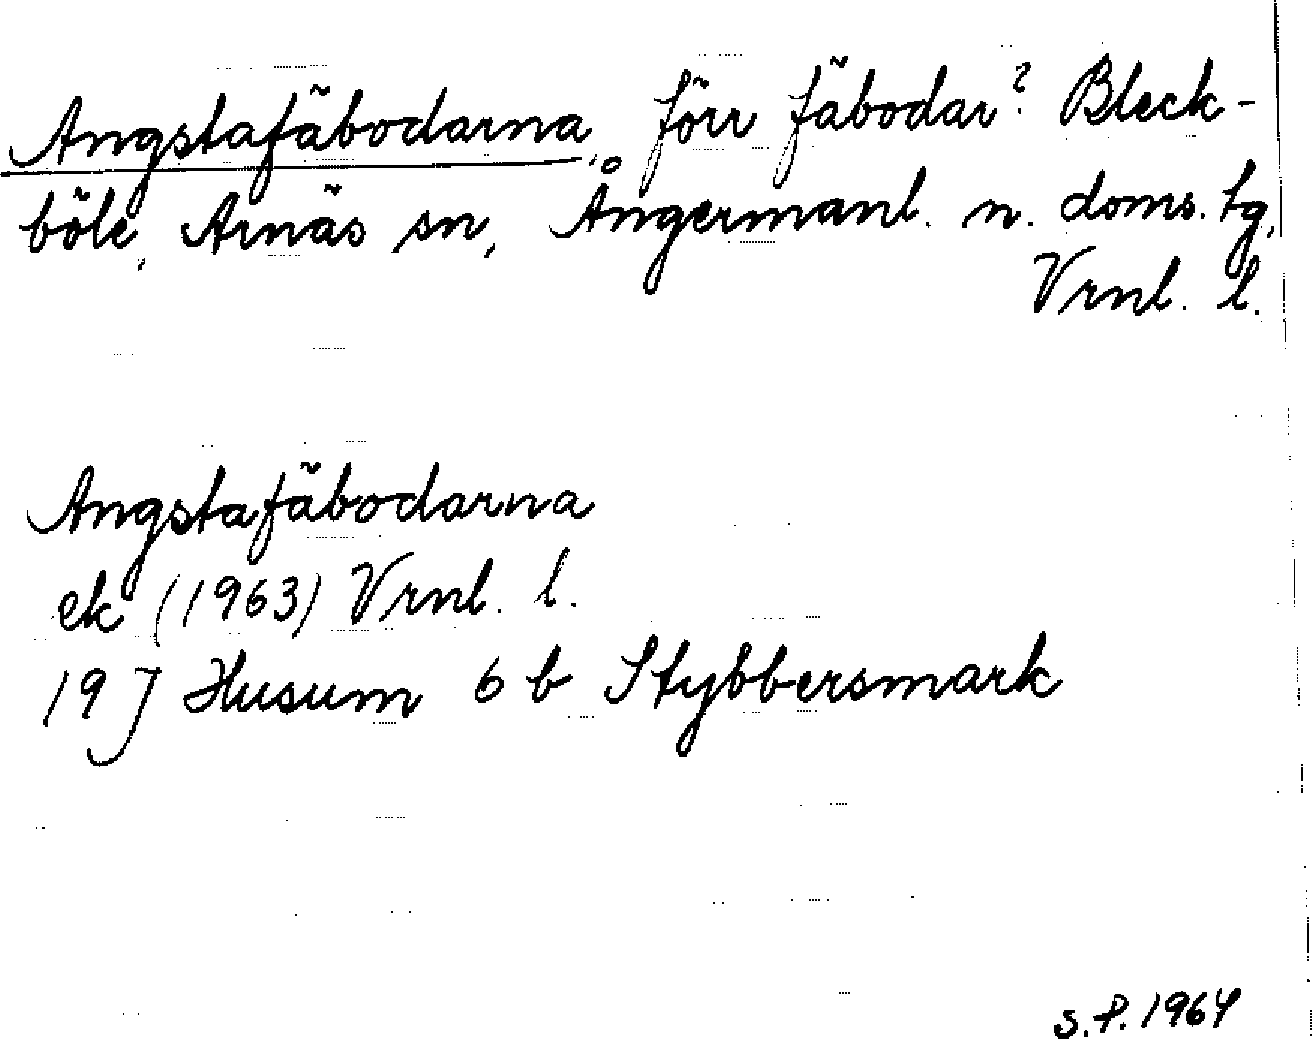 Angstafäbodarna, förr fäbodar? Bleck-
böle, Arnäs sn, Ångermanl. n. doms. tg,
Vrnl. l.
Angstafäbodarna
ek (1963) Vrnl. l.
19 J Husum 6 b Stybbersmark
S.P. 1964